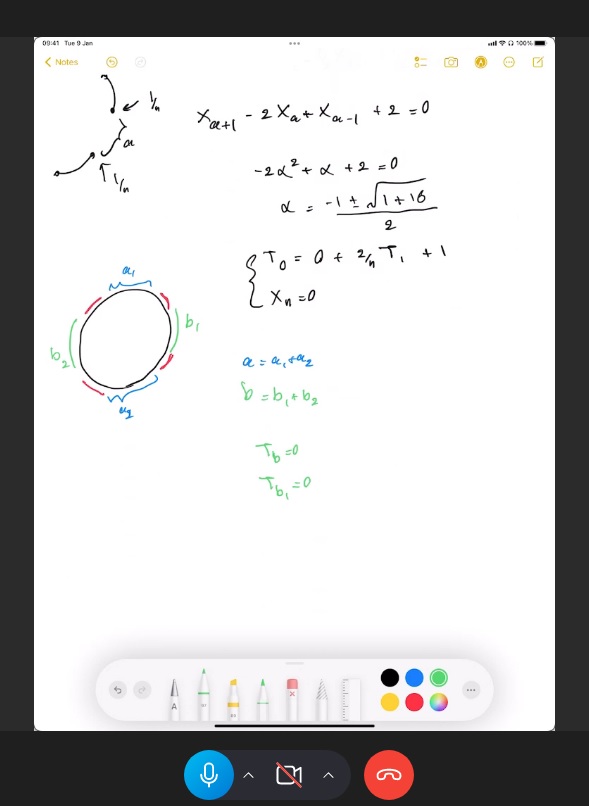 09:41 Tue 9 Jan
100%
Notes
1/n
a
1/n
X_{a+1} - 2X_a + X_{a-1} + 2 = 0
-2α² + α + 2 = 0
α = (-1 ± √(1+16))/2
T_0 = 0 + 2/n T_1 + 1
X_n = 0
a_1
b_1
b_2
a_2
a = a_1 + a_2
b = b_1 + b_2
T_b = 0
T_{b_1} = 0
A